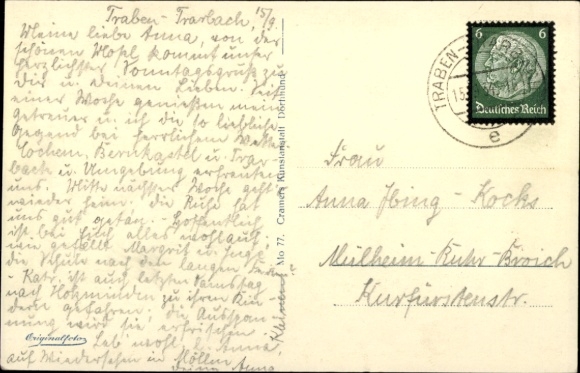 Traben-Trarbach, 15/9.
Meine liebe Anna, von der
schönen Mosel kommt unser
herzlichster Sonntagsgruß zu
Dir u. Deinen Lieben. Seit
einer Woche genießen mein
Getreuer u. ich die so liebliche
Gegend bei herrlichem Wetter
Cochem, Bernkastel u. Trar-
bach u. Umgebung erfreuten
uns. Mitte nächster Woche geht's
wieder heim. Die Ruhe hat
uns gut getan. - Hoffentlich
ist bei Euch alles wohlauf
wie geht Margrit u. Inge
die Schule nach den langen Ferien?
- Kätr. ist auch letzten Samstag
nach Holzminden zu ihren Kin-
dern gefahren, die Ausspan-
nung wird sie erfrischen.
Leb' wohl, l. Anna,
auf Wiedersehen in Möllen
Deine Anna
Originalfoto
Mo 77. Cramers Kunstanstalt Dortmund
6 6
Deutsches Reich
TRABEN-TRARBACH
15
e
Frau
Anna Hing-Kocks
Mülheim-Ruhr-Broich
Kurfürstenstr.